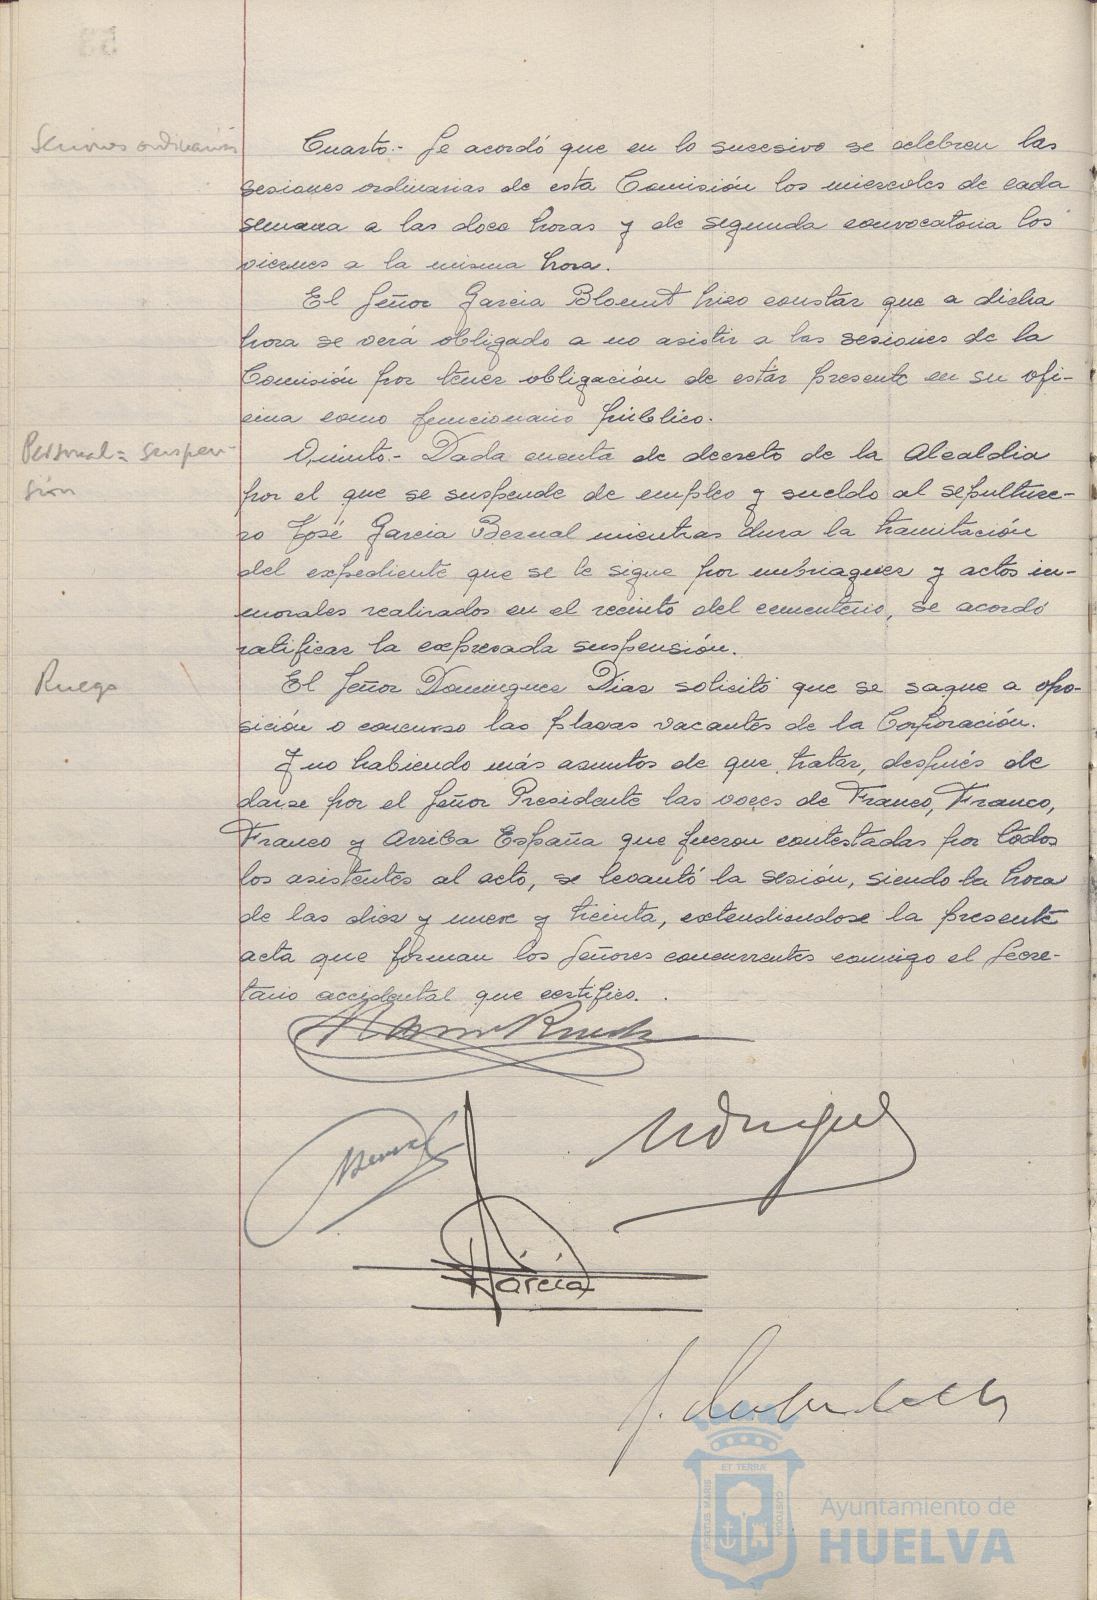 Sesiones ordinarias
Cuarto.- Se acordó que en lo sucesivo se celebren las
sesiones ordinarias de esta Comisión los miercoles de cada
semana a las doce horas y de segunda convocatoria los
viernes a la misma hora.
El Señor Garcia Blocmt hizo constar que a dicha
hora se verá obligado a no asistir a las sesiones de la
Comisión por tener obligación de estar presente en su ofi-
cina como funcionario público.
Personal= suspen-
sión
Quinto.- Dada cuenta de decreto de la Alcaldia
por el que se suspende de empleo y sueldo al sepulture-
ro José Garcia Bernal mientras dura la tramitación
del expediente que se le sigue por embriaguez y actos in-
morales realizados en el recinto del cementerio, se acordó
ratificar la expresada suspensión.
Ruego
El Señor Dominguez Diaz solicitó que se saque a opo-
sición o concurso las plazas vacantes de la Corporación.
Y no habiendo más asuntos de que tratar, después de
darse por el Señor Presidente las voces de Franco, Franco,
Franco y Arriba España que fueron contestadas por todos
los asistentes al acto, se levantó la sesión, siendo la hora
de las diez y nueve y treinta, extendiendose la presente
acta que firman los Señores concurrentes conmigo el Secre-
tario accidental que certifico.
García
ET TERRÆ
PORTUS MARIS
CUSTODIA
Ayuntamiento de
HUELVA